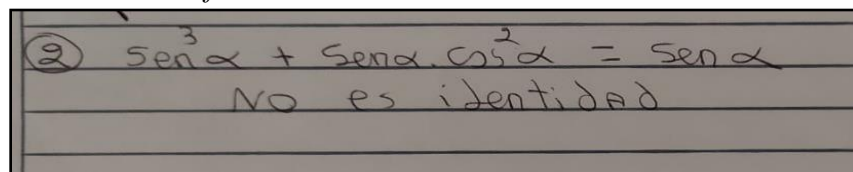 ② sen³α + senα.cos²α = sen α
No es identidad